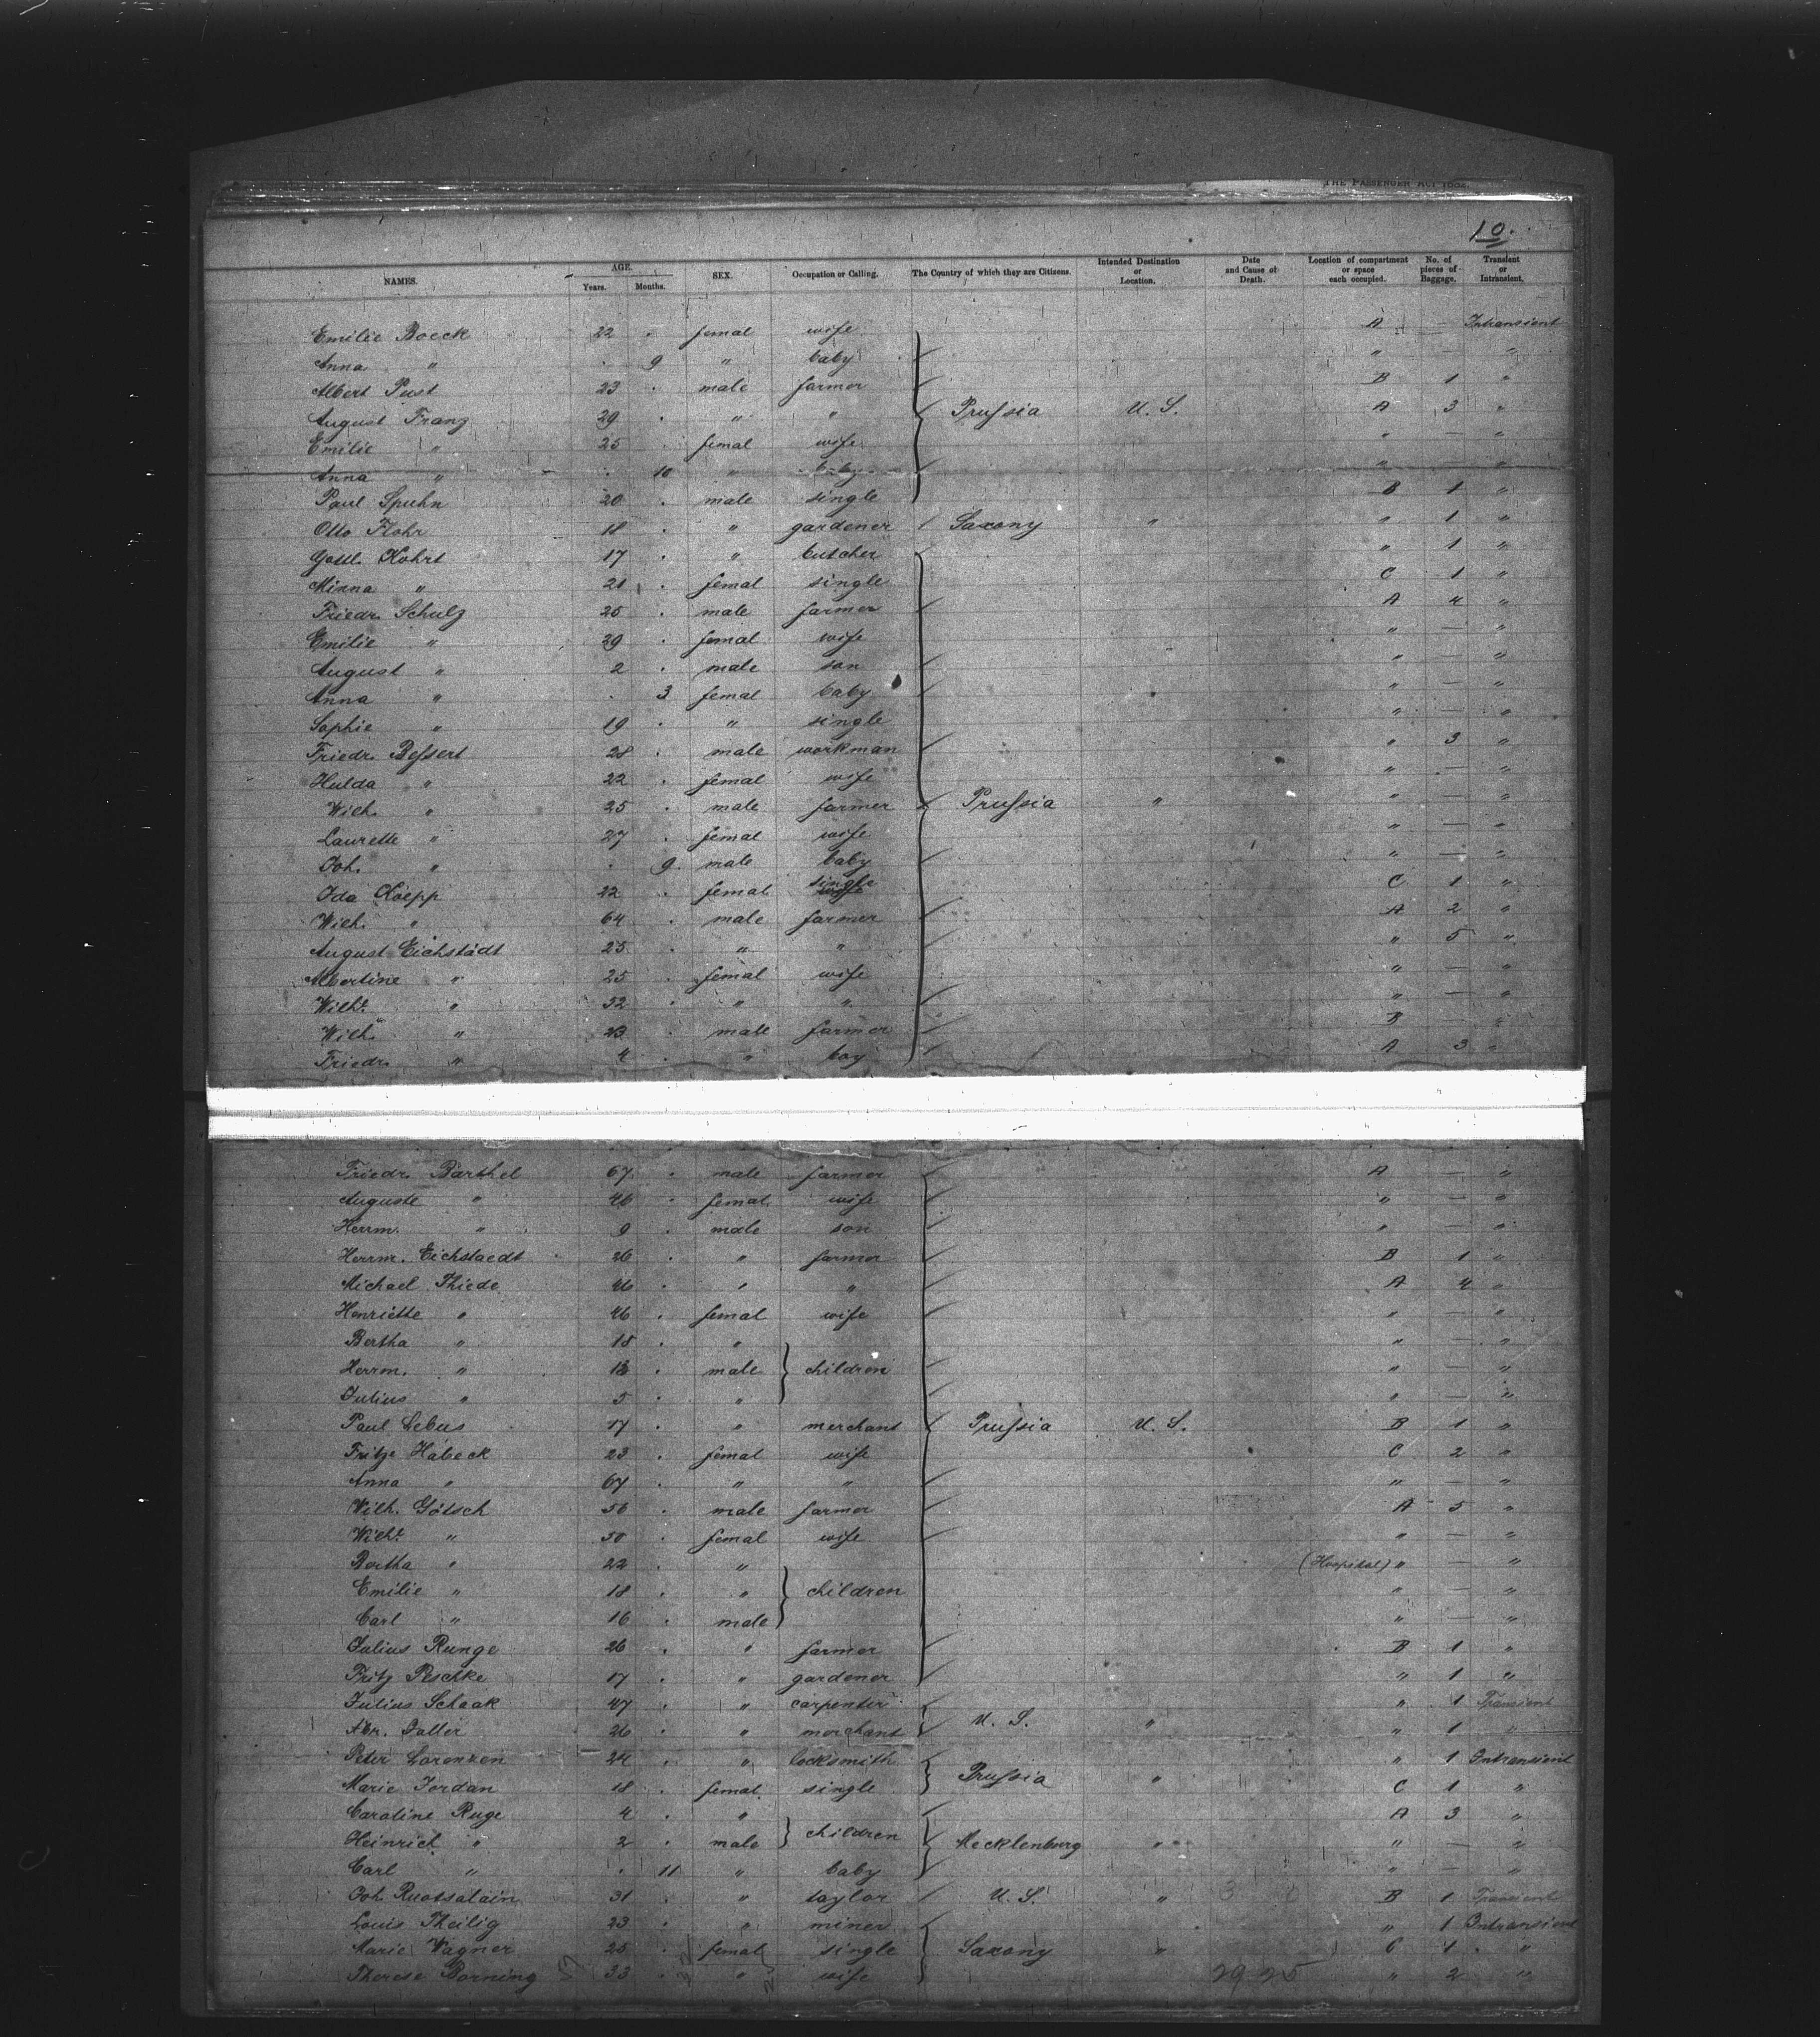 THE PASSENGER ACT 1882.
10.
NAMES. AGE. Years. Months. SEX. Occupation or Calling. The Country of which they are Citizens. Intended Destination or Location. Date and Cause of Death. Location of compartment or space each occupied. No. of pieces of Baggage. Transient or Intransient.
Emilie Boeck 22 . femal wife A — Intransient
Anna " . 9 " baby " — "
Albert Pust 23 . male farmer B 1 "
August Franz 29 . " " Prussia U. S. A 3 "
Emilie " 25 . femal wife " — "
Anna " . 10 " baby " — "
Paul Spuhn 20 . male single B 1 "
Otto Flohr 18 . " gardener Saxony " " 1 "
Gottl. Kohrt 17 . " butcher " 1 "
Minna " 21 . femal single C 1 "
Friedr. Schulz 25 . male farmer A 4 "
Emilie " 29 . femal wife " — "
August " 2 . male son " — "
Anna " . 3 femal baby " — "
Sophie " 19 . " single " — "
Friedr. Bessert 28 . male workman " 3 "
Hulda " 22 . femal wife " — "
Wilh. " 25 . male farmer Prussia " " — "
Laurette " 27 . femal wife " — "
Joh. " . 9. male baby " — "
Ida Koepp 22 . femal single C 1 "
Wilh. " 64 . male farmer A 2 "
August Eichstädt 25 . " " " 5 "
Albertine " 25 . femal wife " — "
Wilh. " 32 . " " " — "
Wilh. " 23 . male farmer B — "
Friedr. " 4 . " boy A 3 "
Friedr. Barthel 67 . male farmer A — "
Auguste " 46 . femal wife " — "
Herrm. " 9 . male son " — "
Herrm. Eichstaedt 26 . " farmer B 1 "
Michael Thiede 46 . " " A 4 "
Henriette " 46 . femal wife " — "
Bertha " 18 . " " — "
Herrm. " 13 . male children " — "
Julius " 5 . " " — "
Paul Lebus 17 . " merchant Prussia U. S. B 1 "
Fritze Habeck 23 . femal wife C 2 "
Anna " 67 . " " " — "
Wilh. Götsch 56 . male farmer A 5 "
Wilh. " 50 . femal wife " — "
Bertha " 22 . " (Hospital) " — "
Emilie " 18 . " children " — "
Carl " 16 . male " — "
Julius Runge 26 . " farmer B 1 "
Fritz Peschke 17 . " gardener " 1 "
Julius Schaak 47 . " carpenter " 1 Transient
Abr. 26 . " merchant U. S. " " 1 "
Peter Lorenzen 24 . " locksmith " 1 Intransient
Marie Jordan 18 . femal single Prussia " C 1 "
Caroline Ruge 4 . " A 3 "
Heinrich " 2 . male children Mecklenburg " " — "
Carl " . 11 " baby " — "
Joh. Ruotsalain 31 . " taylor U. S. " B 1 Transient
Louis Theilig 23 . " miner " 1 Intransient
Marie Wagner 25 . femal single Saxony " C 1 "
Therese Borning 33 . " wife 29 25 " 2 "